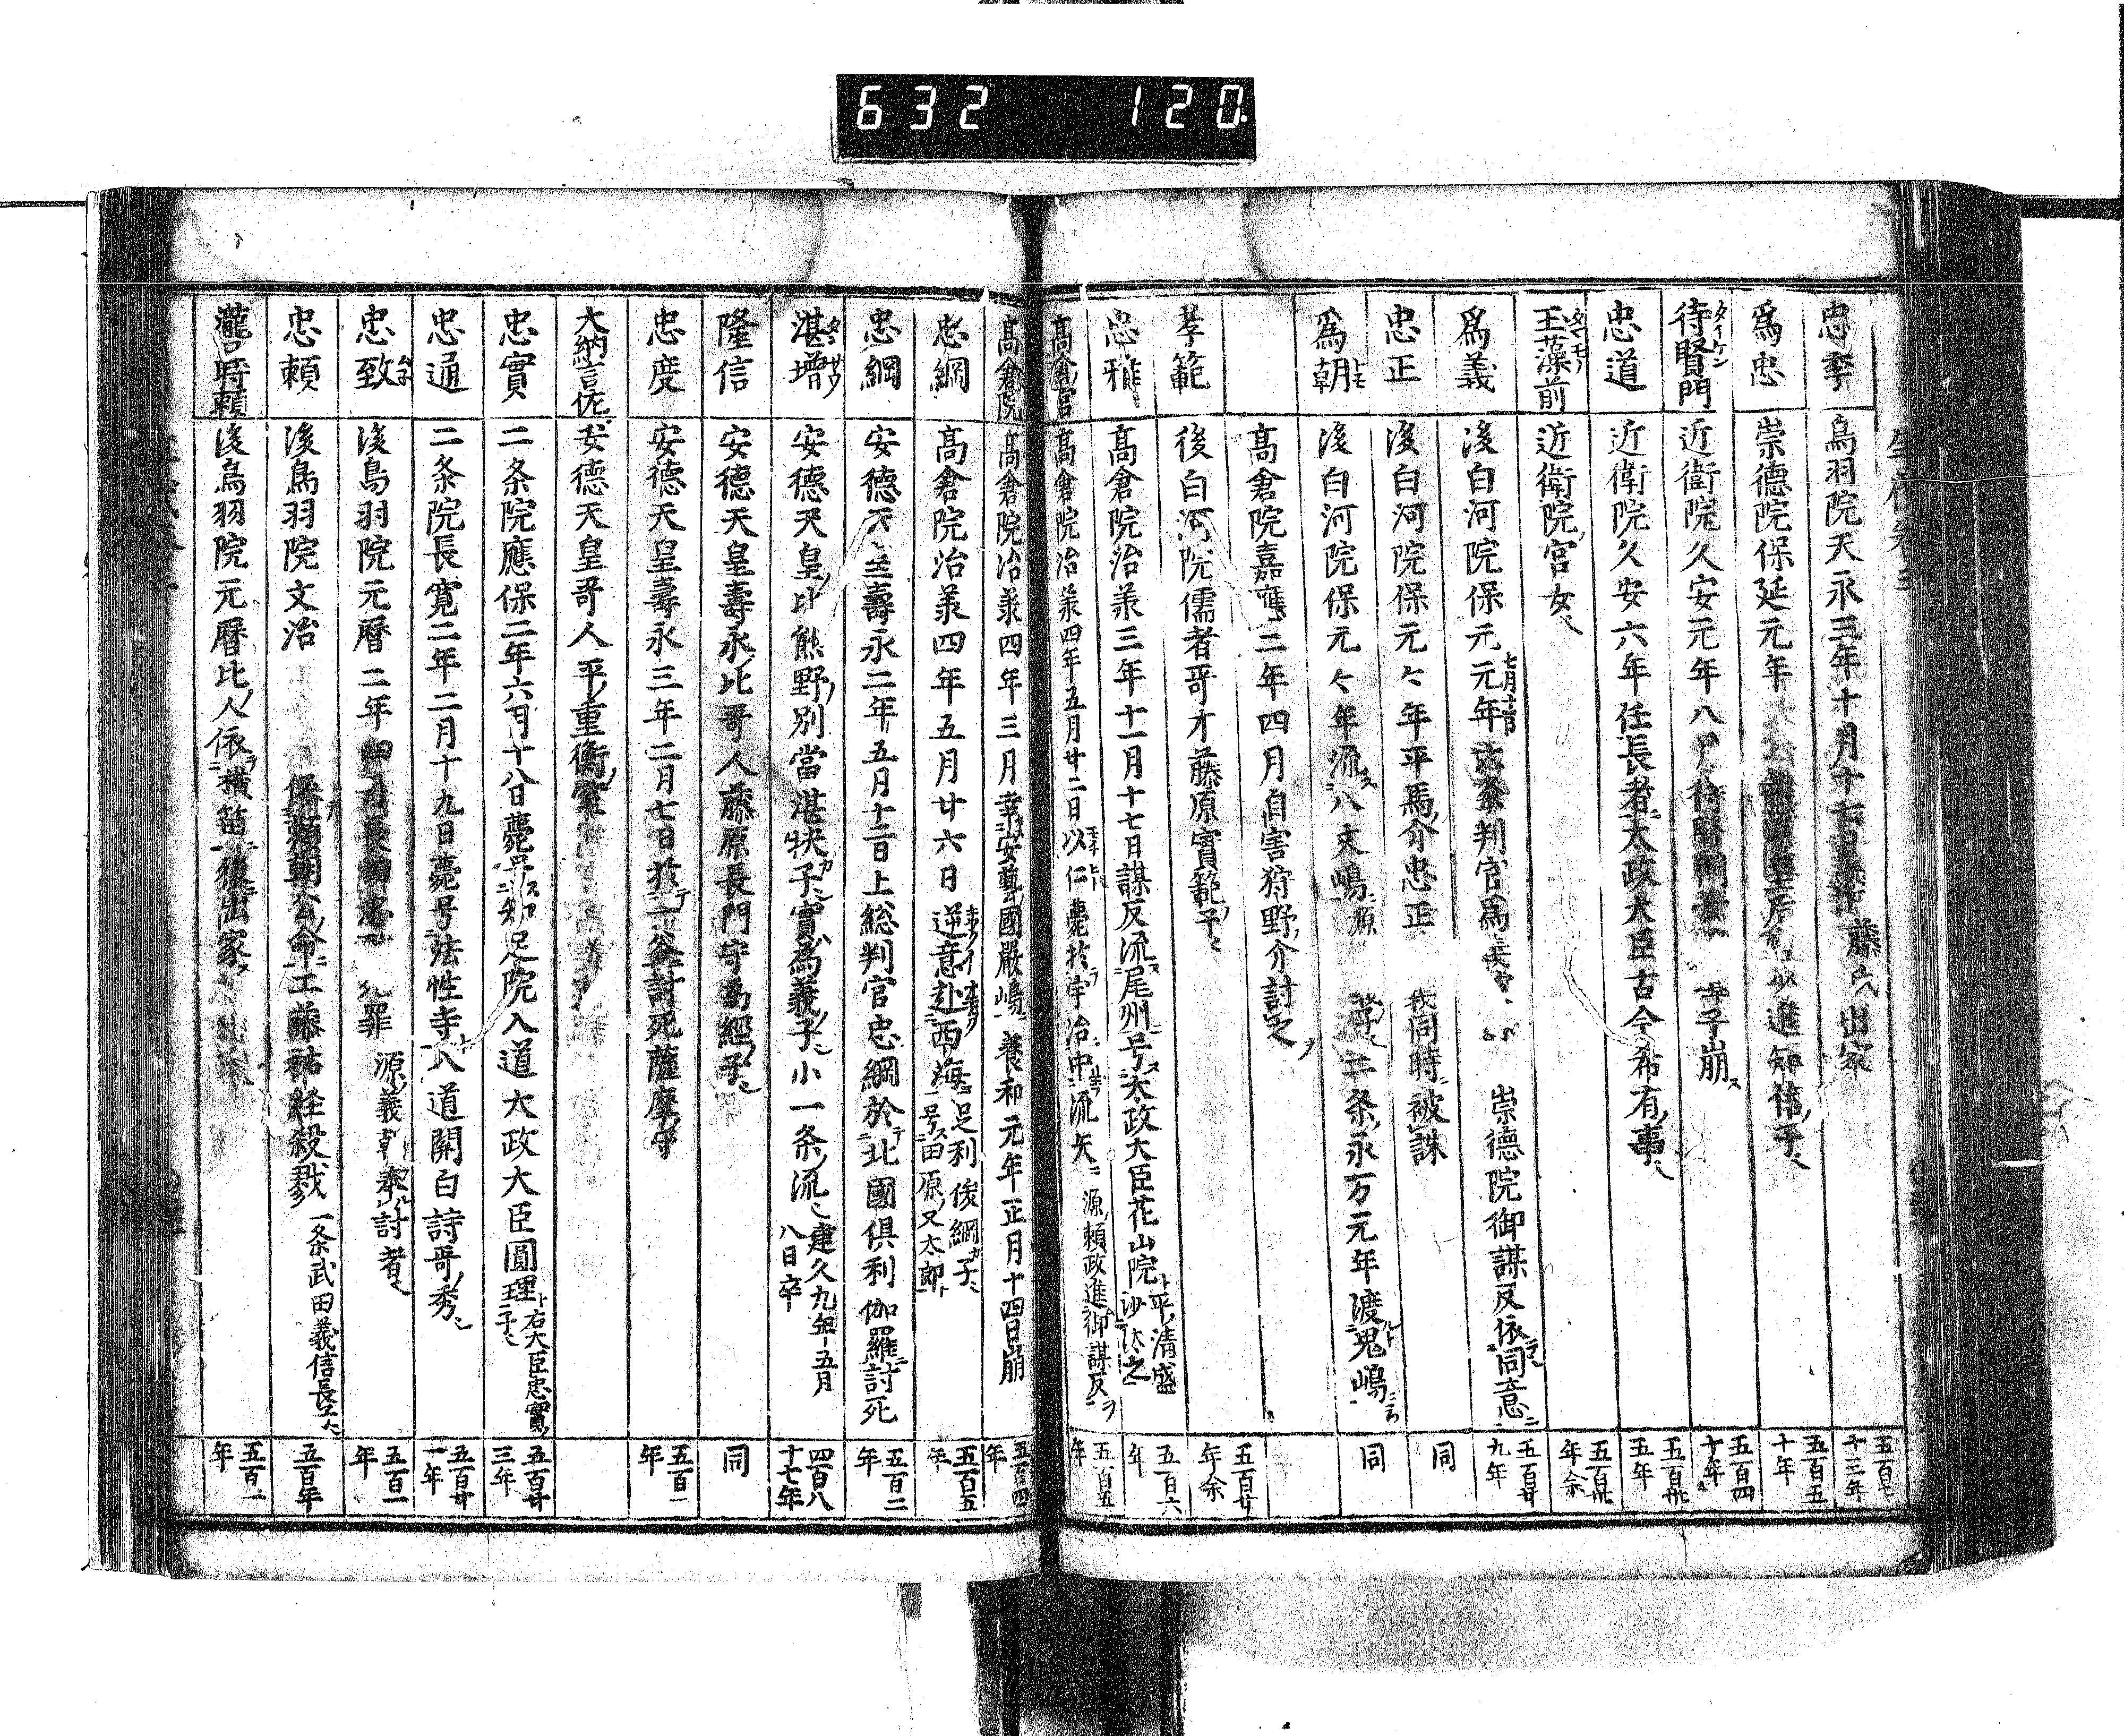 632 120
忠季 鳥羽院天永三年十月十七日 藤氏 出家 五百七十三年
爲忠 崇德院保延元年 進知信ノ子也 五百五十年
待賢門 タイケン 近衛院久安元年八月 待賢門 母子崩ス 五百四十年
忠道 近衛院久安六年任長者太政大臣古今希有ノ事也 五百卅五年
玉藻前 タマモノ 近衛院ノ宮女也 五百卅年余
爲義 後白河院保元元年七月 六条判官爲義 崇德院御謀反依同意ニ 五百廿九年
忠正 後白河院保元々年平馬ノ介忠正 同時ニ被誅 同
爲朝 トモ 後白河院保元々年流ス八丈嶋ニ源 二条ノ永万元年渡鬼嶋ニ 同
髙倉院嘉應二年四月自害狩野ノ介討之
孝範 後白河院儒者哥才藤原實範ノ子也 五百廿年余
忠雅 髙倉院治承三年十一月十七日謀反流ス尾州ニ号ス太政大臣花山院ト平ノ清盛沙汰之 五百六年
髙倉ノ宮 髙倉院治承四年五月廿二日以仁薨於宇治ノ中流矢ニ 源ノ頼政進ム御謀反ヲ 五百五年
髙倉院 髙倉院治承四年三月幸安藝ノ國嚴嶋ニ養和元年正月十四日崩 五百四年
忠綱 髙倉院治承四年五月廿六日逆意赴西海ニ足利俊綱カ子也号ス田原ノ又太郎ト 五百五年
忠綱 安德天皇壽永二年五月十二日上総判官忠綱於北國倶利伽羅ニ討死 五百二年
湛増 タンサウ 安德天皇ノ比熊野ノ別當湛快カ子也實ハ爲義ノ子也小一条ノ流也建久九年五月八日卒 四百八十七年
隆信 安德天皇壽永ノ比哥人藤原長門守爲經ノ子也 同
忠度 安德天皇壽永三年二月七日於一ノ谷討死薩摩ノ守 五百一年
大納言佐 安德天皇哥人平ノ重衡ノ室
忠實 二条院應保二年六月十八日薨号ス知足院入道大政大臣圓理ト右大臣忠實ノ子也 五百廿三年
忠通 二条院長寛二年二月十九日薨号法性寺入道關白詩哥ノ秀也 五百廿一年
忠致 後鳥羽院元曆二年四月長田忠 罪 源ノ義朝奉ル討者也 五百一年
忠頼 後鳥羽院文治 依頼朝公ノ命ニ工藤祐経殺戮 一条武田義信長子也 五百年
瀧口時頼 後鳥羽院元曆ノ比人依横笛ニ後出家 五百一年